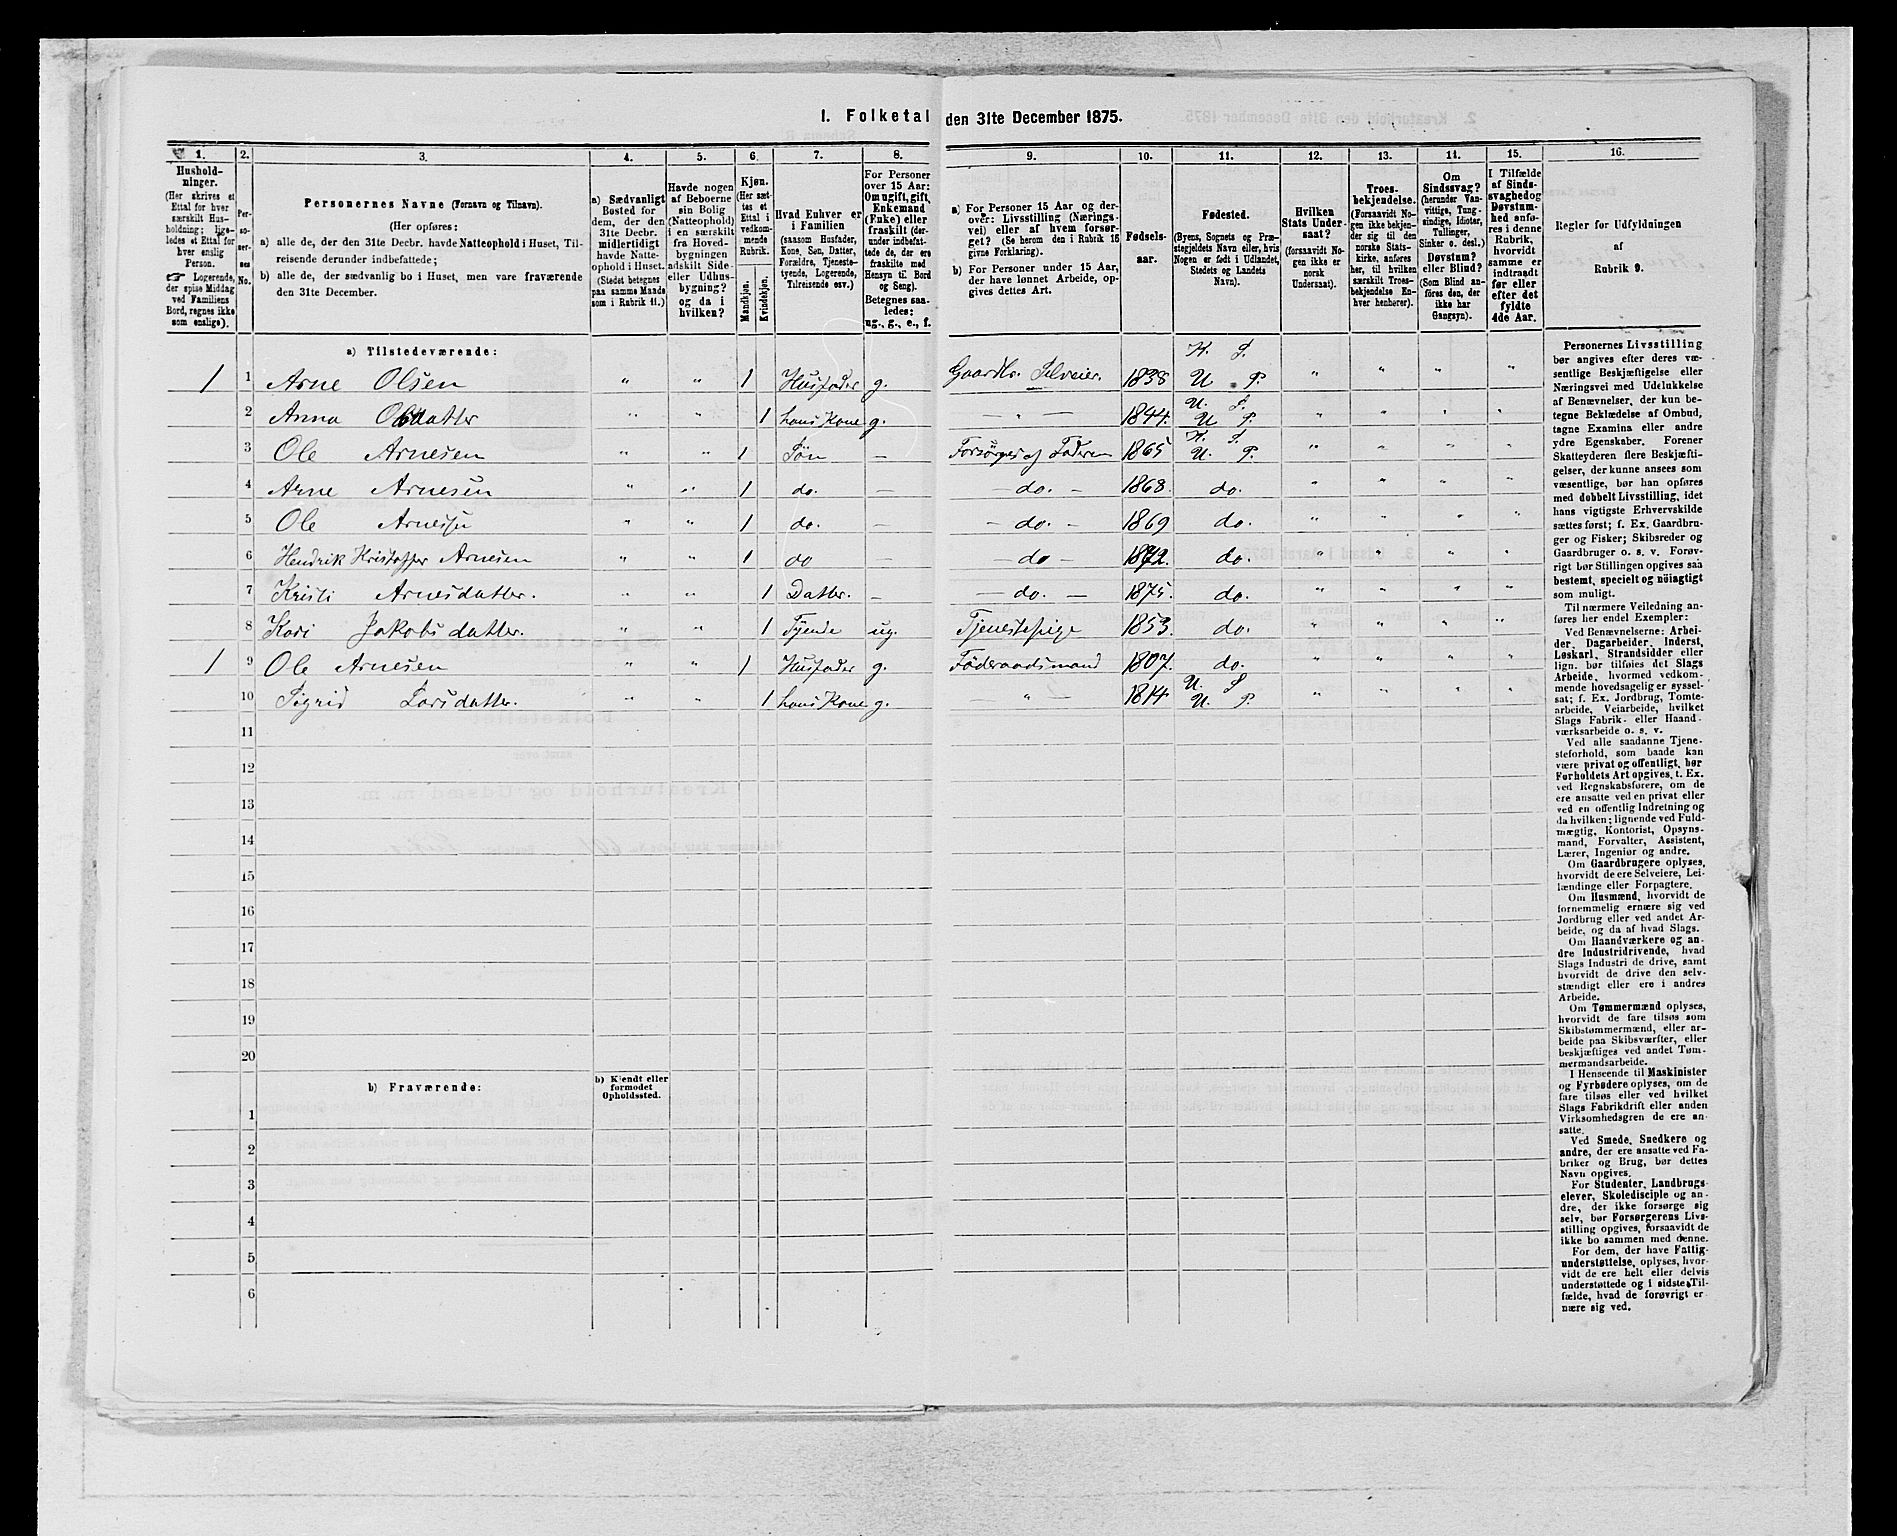 1. Folketal den 31te December 1875.
1. 2. 3. 4. 5. 6. 7. 8. 9. 10. 11. 12. 13. 14. 15. 16.
Husholdninger.
(Her skrives et
Ettal for hver
særskilt Hus-
holdning; lige-
ledes et Ettal for
hver enslig
Person.
☛ Logerende,
der spise Middag
ved Familiens
Bord, regnes ikke
som enslige).
Per-
so-
ner-
nes
No.
Personernes Navne (Fornavn og Tilnavn).
(Her opføres:
a) alle de, der den 31te Decbr. havde Natteophold i Huset, Til-
reisende derunder indbefattede;
b) alle de, der sædvanlig bo i Huset, men vare fraværende
den 31te December.
a) Sædvanligt
Bosted for
dem, der den
31te Decbr.
midlertidigt
havde Natte-
ophold i Huset.
(Stedet betegnes
paa samme Maade
som i Rubrik 11.)
Havde nogen
af Beboerne
sin Bolig
(Natteophold)
i en særskilt
fra Hoved-
bygningen
adskilt Side-
eller Udhus-
bygning?
og da i
hvilken?
Kjøn.
(Her sæt-
tes et
Ettal i
vedkom-
mende
Rubrik.
Mandkjøn.
Kvindekjøn.
Hvad Enhver er
i Familien
(saasom Husfader,
Kone, Søn, Datter,
Forældre, Tjeneste-
tyende, Logerende,
Tilreisende osv.)
For Personer
over 15 Aar:
Om ugift, gift,
Enkemand
(Enke) eller
fraskilt (der-
under indbefat-
tede de, der ere
fraskilte med
Hensyn til Bord
og Seng).
Betegnes saa-
ledes:
ug., g., e., f.
a) For Personer 15 Aar og der-
over: Livsstilling (Nærings-
vei) eller af hvem forsør-
get? (Se herom den i Rubrik 16
givne Forklaring).
b) For Personer under 15 Aar,
der have lønnet Arbeide, op-
gives dettes Art.
Fødsels-
aar.
Fødested.
(Byens, Sognets og Præ-
stegjeldets Navn eller, hvis
Nogen er født i Udlandet,
Stedets og Landets
Navn).
Hvilken
Stats Under-
saat?
(forsaavidt No-
gen ikke er
norsk
Undersaat).
Troes-
bekjendelse.
(Forsaavidt No-
gen ikke bekjen-
der sig til den
norske Stats-
kirke, anføres
her, til hvilken
særskilt Troes-
bekjendelse En-
hver henhører).
Om
Sindssvag?
(herunder Van-
vittige, Tung-
sindige, Idioter,
Tullinger,
Sinker o. desl.)
Døvstum?
eller Blind?
(Som Blind an-
føres den, der
ikke har
Gangsyn).
I Tilfælde
af Sinds-
svaghed og
Døvstum-
hed anfø-
res i denne
Rubrik,
hvorvidt
samme er
indtraadt
før eller
efter det
fyldte
4de Aar.
Regler for Udfyldningen
af
Rubrik 9.
a) Tilstedeværende:
K. S.
1 1 Arne Olsen " " 1 Husfader g. Gaardbr. Selveier. 1838 U. P. " " " "
U. S.
2 Anna Olsdatter " " 1 hans Kone g. — " — 1844. U P. " " " "
K. S.
3 Ole Arnesen " " 1 Søn — Forsørges af Faderen 1865 U. P. " " " "
4 Arne Arnesen " " 1 do. — — do. — 1868. do. " " " "
5 Ole Arnesen " " 1 do. — — do. — 1869 do. " " " "
6 Hendrik Kristoffer Arnesen " " 1 do — do — 1872. do. " " " "
7 Kristi Arnesdatter. " " 1 Datter. — — do. — 1875. do. " " " "
8 Kari Jakobsdatter. " " 1 Tyende ug. Tjenestepige 1853. do. " " " "
1 9 Ole Arnesen " " 1 Husfader g. Føderaadsmand 1807. do. " " " "
U. S
10 Sigrid Larsdatter. " " 1 hans Kone g. — " — 1814 U. P. " " " "
11
12
13
14
15
16
17
18
19
20
b) Fraværende:
b) Kjendt eller
formodet
Opholdssted.
1
2
3
4
5
6
Personernes Livsstilling
bør angives efter deres væ-
sentlige Beskjæftigelse eller
Næringsvei med Udelukkelse
af Benævnelser, der kun be-
tegne Beklædelse af Ombud,
tagne Examina eller andre
ydre Egenskaber. Forener
Skatteyderen flere Beskjæfti-
gelser, der kunne ansees som
væsentlige, bør han opføres
med dobbelt Livsstilling, idet
hans vigtigste Erhvervskilde
sættes først; f. Ex. Gaardbru-
ger og Fisker; Skibsreder og
Gaardbruger o. s. v. Forøv-
rigt bør Stillingen opgives saa
bestemt, specielt og nöiagtigt
som muligt.
Til nærmere Veiledning an-
føres her endel Exempler:
Ved Benævnelserne: Arbei-
der, Dagarbeider, Inderst,
Løskarl, Strandsidder eller
lign. bør tilføies det Slags
Arbeide, hvormed vedkom-
mende hovedsagelig er syssel-
sat; f. Ex. Jordbrug, Tomte-
arbeide, Veiarbeide, hvilket
Slags Fabrik- eller Haand-
værksarbeide o. s. v.
Ved alle saadanne Tjene-
steforhold, som baade kan
være privat og offentligt, bør
Forholdets Art opgives, t. Ex.
ved Regnskabsførere, om de
ere ansatte ved en privat eller
ved en offentlig Indretning og
da hvilken; lignende ved Fuld-
mægtig, Kontorist, Opsyns-
mand, Forvalter, Assistent,
Lærer, Ingeniør og andre.
Om Gaardbrugere oplyses,
hvorvidt de ere Selveiere, Lei-
lændinge eller Forpagtere.
Om Husmænd, hvorvidt de
fornemmelig ernære sig ved
Jordbrug eller ved andet Ar-
beide, og da af hvad Slags.
Om Haandværkere og an-
dre Industridrivende, hvad
Slags Industri de drive, samt
hvorvidt de drive den selv-
stændigt eller ere i andres
Arbeide.
Om Tømmermænd oplyses,
hvorvidt de fare tilsøs som
Skibstømmermænd, eller ar-
beide paa Skibsværfter, eller
beskjæftiges ved andet Tøm-
mermandsarbeide.
I Henseende til Maskinister
og Fyrbødere oplyses, om de
fare tilsøs eller ved hvilket
Slags Fabrikdrift eller anden
Virksomhedsgren de ere an-
satte.
Ved Smede, Snedkere og
andre, der ere ansatte ved Fa-
briker og Brug, bør dettes
Navn opgives.
For Studenter, Landbrugs-
elever, Skoledisciple og an-
dre, der ikke forsørge sig
selv, bør Forsørgerens Livs-
stilling opgives, forsaavidt de
ikke bo sammen med denne.
For dem, der have Fattig-
understøttelse, oplyses, hvor-
vidt de ere helt eller delvis
understøttede og i sidste Til-
fælde, hvad de forøvrigt er-
nære sig ved.